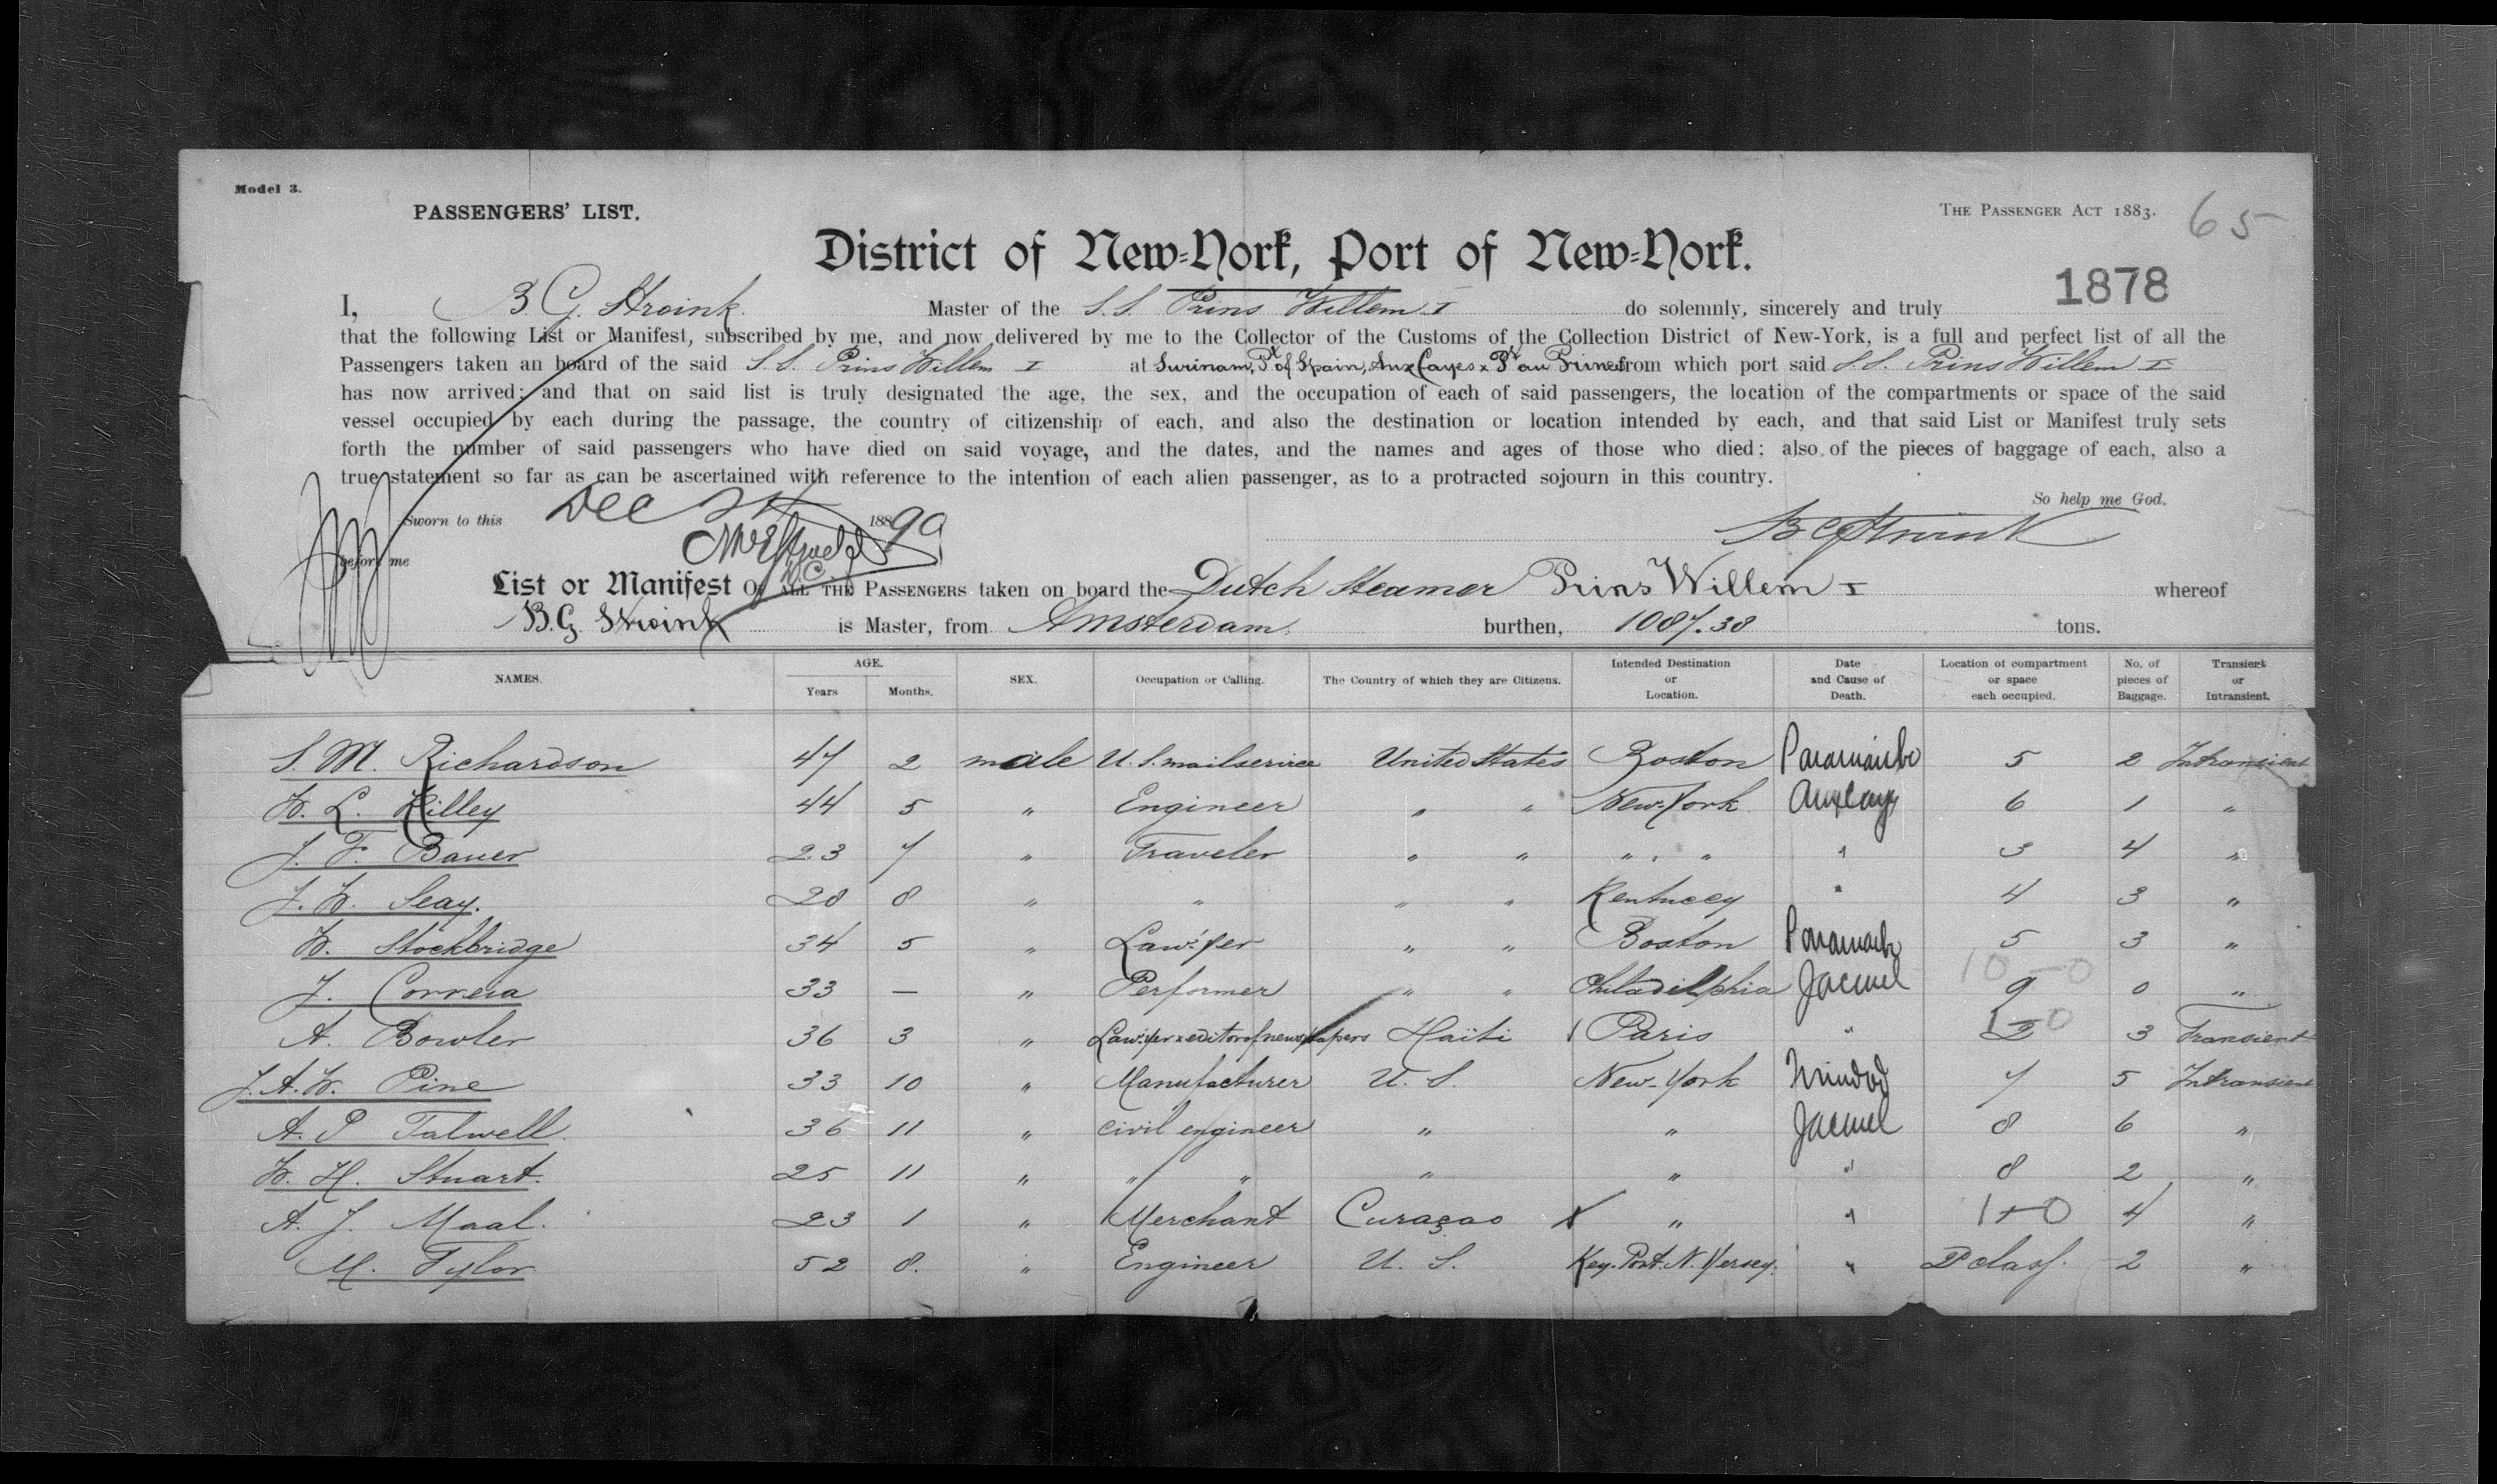 Model 3.
PASSENGERS' LIST.
THE PASSENGER ACT 1883. 65
District of New-York, Port of New-York.
1878
I, B G. Stroink. Master of the S.S. Prins Willem I do solemnly, sincerely and truly
that the following List or Manifest, subscribed by me, and now delivered by me to the Collector of the Customs of the Collection District of New-York, is a full and perfect list of all the
Passengers taken an board of the said S.S. Prins Willem I at Surinam, Pt of Spain, Aux Cayes x Pt au Prince from which port said S.S. Prins Willem I
has now arrived; and that on said list is truly designated the age, the sex, and the occupation of each of said passengers, the location of the compartments or space of the said
vessel occupied by each during the passage, the country of citizenship of each, and also the destination or location intended by each, and that said List or Manifest truly sets
forth the number of said passengers who have died on said voyage, and the dates, and the names and ages of those who died; also of the pieces of baggage of each, also a
true statement so far as can be ascertained with reference to the intention of each alien passenger, as to a protracted sojourn in this country.
So help me God.
Sworn to this Dec 188 90
B G Stroink
before me
List or Manifest OF ALL THE PASSENGERS taken on board the Dutch Steamer Prins Willem I whereof
B.G. Stroink is Master, from Amsterdam burthen, 1087.38 tons.
NAMES. AGE. Years Months. SEX. Occupation or Calling. The Country of which they are Citizens. Intended Destination or Location. Date and Cause of Death. Location of compartment or space each occupied. No. of pieces of Baggage. Transient or Intransient.
S. M. Richardson 47 2 male U.S. mailservice United States Boston Paramaribo 5 2 Intransient
W. L. Hilley 44 5 " Engineer " " New-York Auxcayes 6 1 "
J. F. Bauer 23 7 " Traveler " " " " " 3 4 "
J. W. Seay. 28 8 " " " " Kentuccy " 4 3 "
W. Stockbridge 34 5 " Law'yer " " Boston Paramaribo 5 3 "
J. Correia 33 — " Performer " " Philadilphia Jacmel 10-0 9 0 "
A. Bowler 36 3 " Law'yer x editor of newspapers Haïti Paris " 1-0 2 3 Transient
J. A. W. Pine 33 10 " Manufacturer U. S. New-York Trinidad 7 5 Intransient
A. P Talwell. 36 11 " civil engineer " " Jacmel 8 6 "
W. H. Stuart. 25 11 " " " " " " 8 2 "
A. J. Maal. 23 1 " Merchant Curaçao X " " 1-0 4 "
M. Tylor 52 8. " Engineer U. S. Key-Port. N. Yersey. " 2d class. 2 "